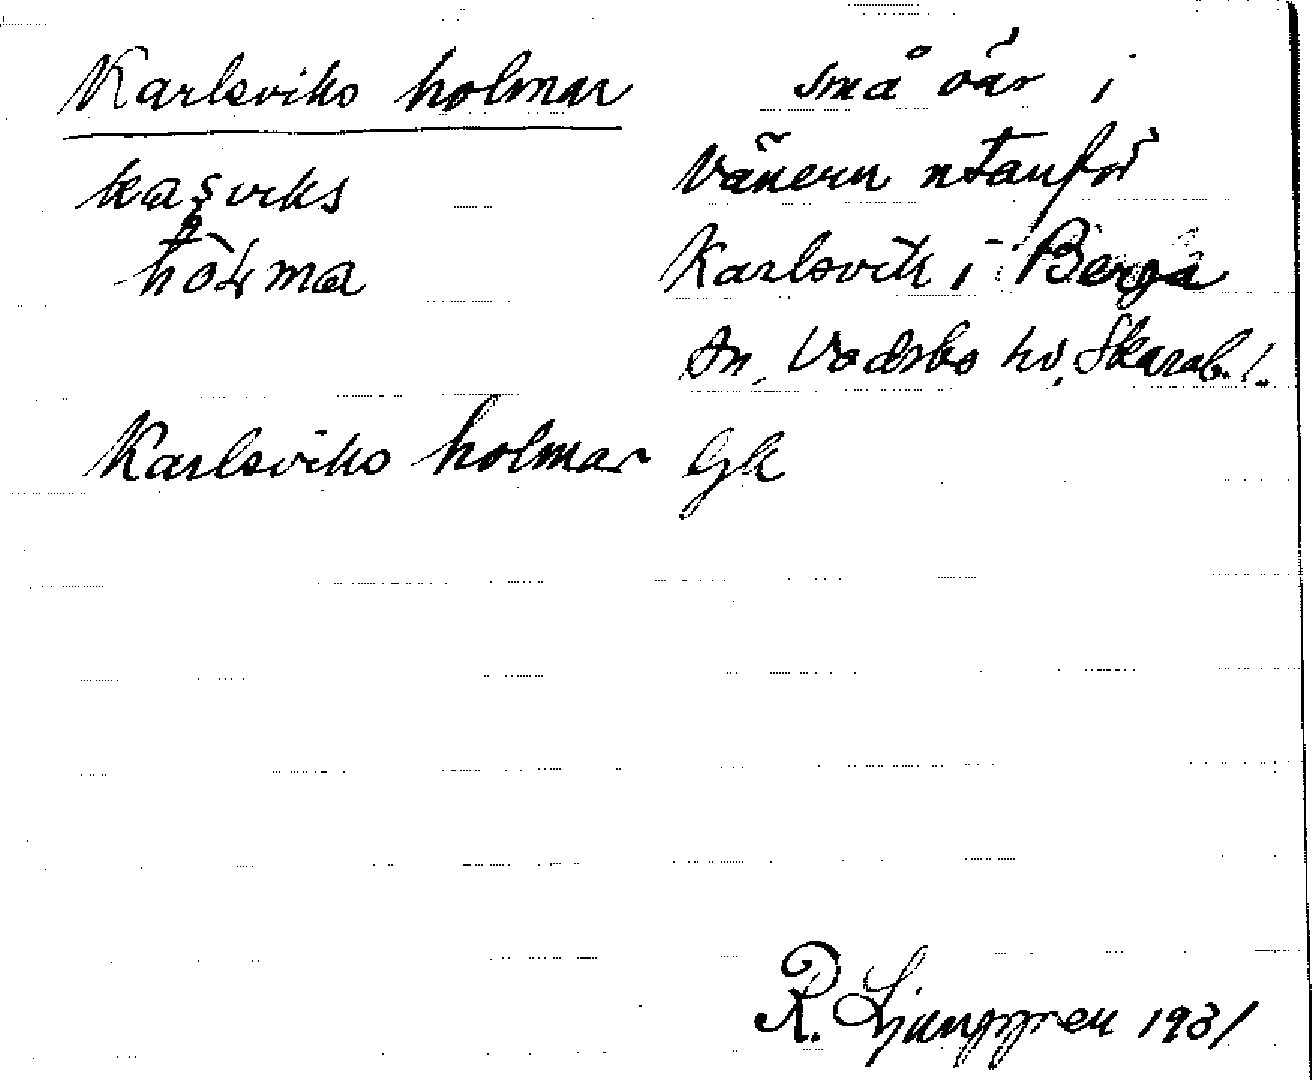 Karlsviks holmar små öar i
kaşvıks Vänern utanför
hò̀ɫ̥ma Karlsvik i Berga
sn, Vadsbo hd, Skarab. l.
Karlsviks holmar Gk
R. Ljunggren 1931